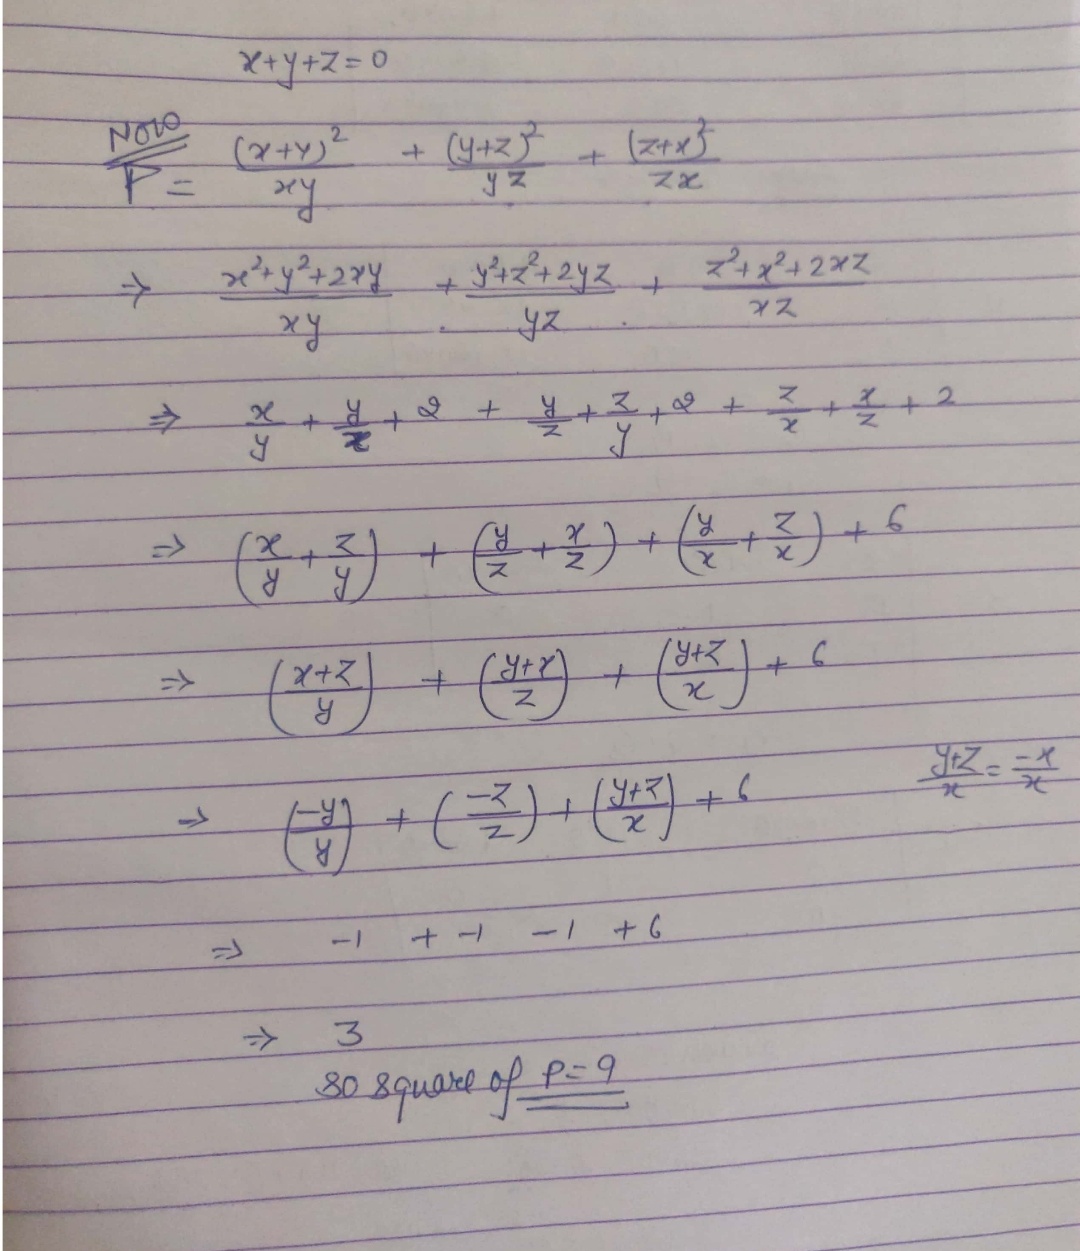 x+y+z=0
Now
P = (x+y)²/xy + (y+z)²/yz + (z+x)²/zx
⇒ x²+y²+2xy/xy + y²+z²+2yz/yz + z²+x²+2xz/xz
⇒ x/y + y/x + 2 + y/z + z/y + 2 + z/x + x/z + 2
⇒ (x/y + z/y) + (y/z + x/z) + (y/x + z/x) + 6
⇒ (x+z/y) + (y+x/z) + (y+z/x) + 6
⇒ (-y/y) + (-z/z) + (y+z/x) + 6 y+z/x = -x/x
⇒ -1 + -1 -1 +6
⇒ 3
so square of P=9